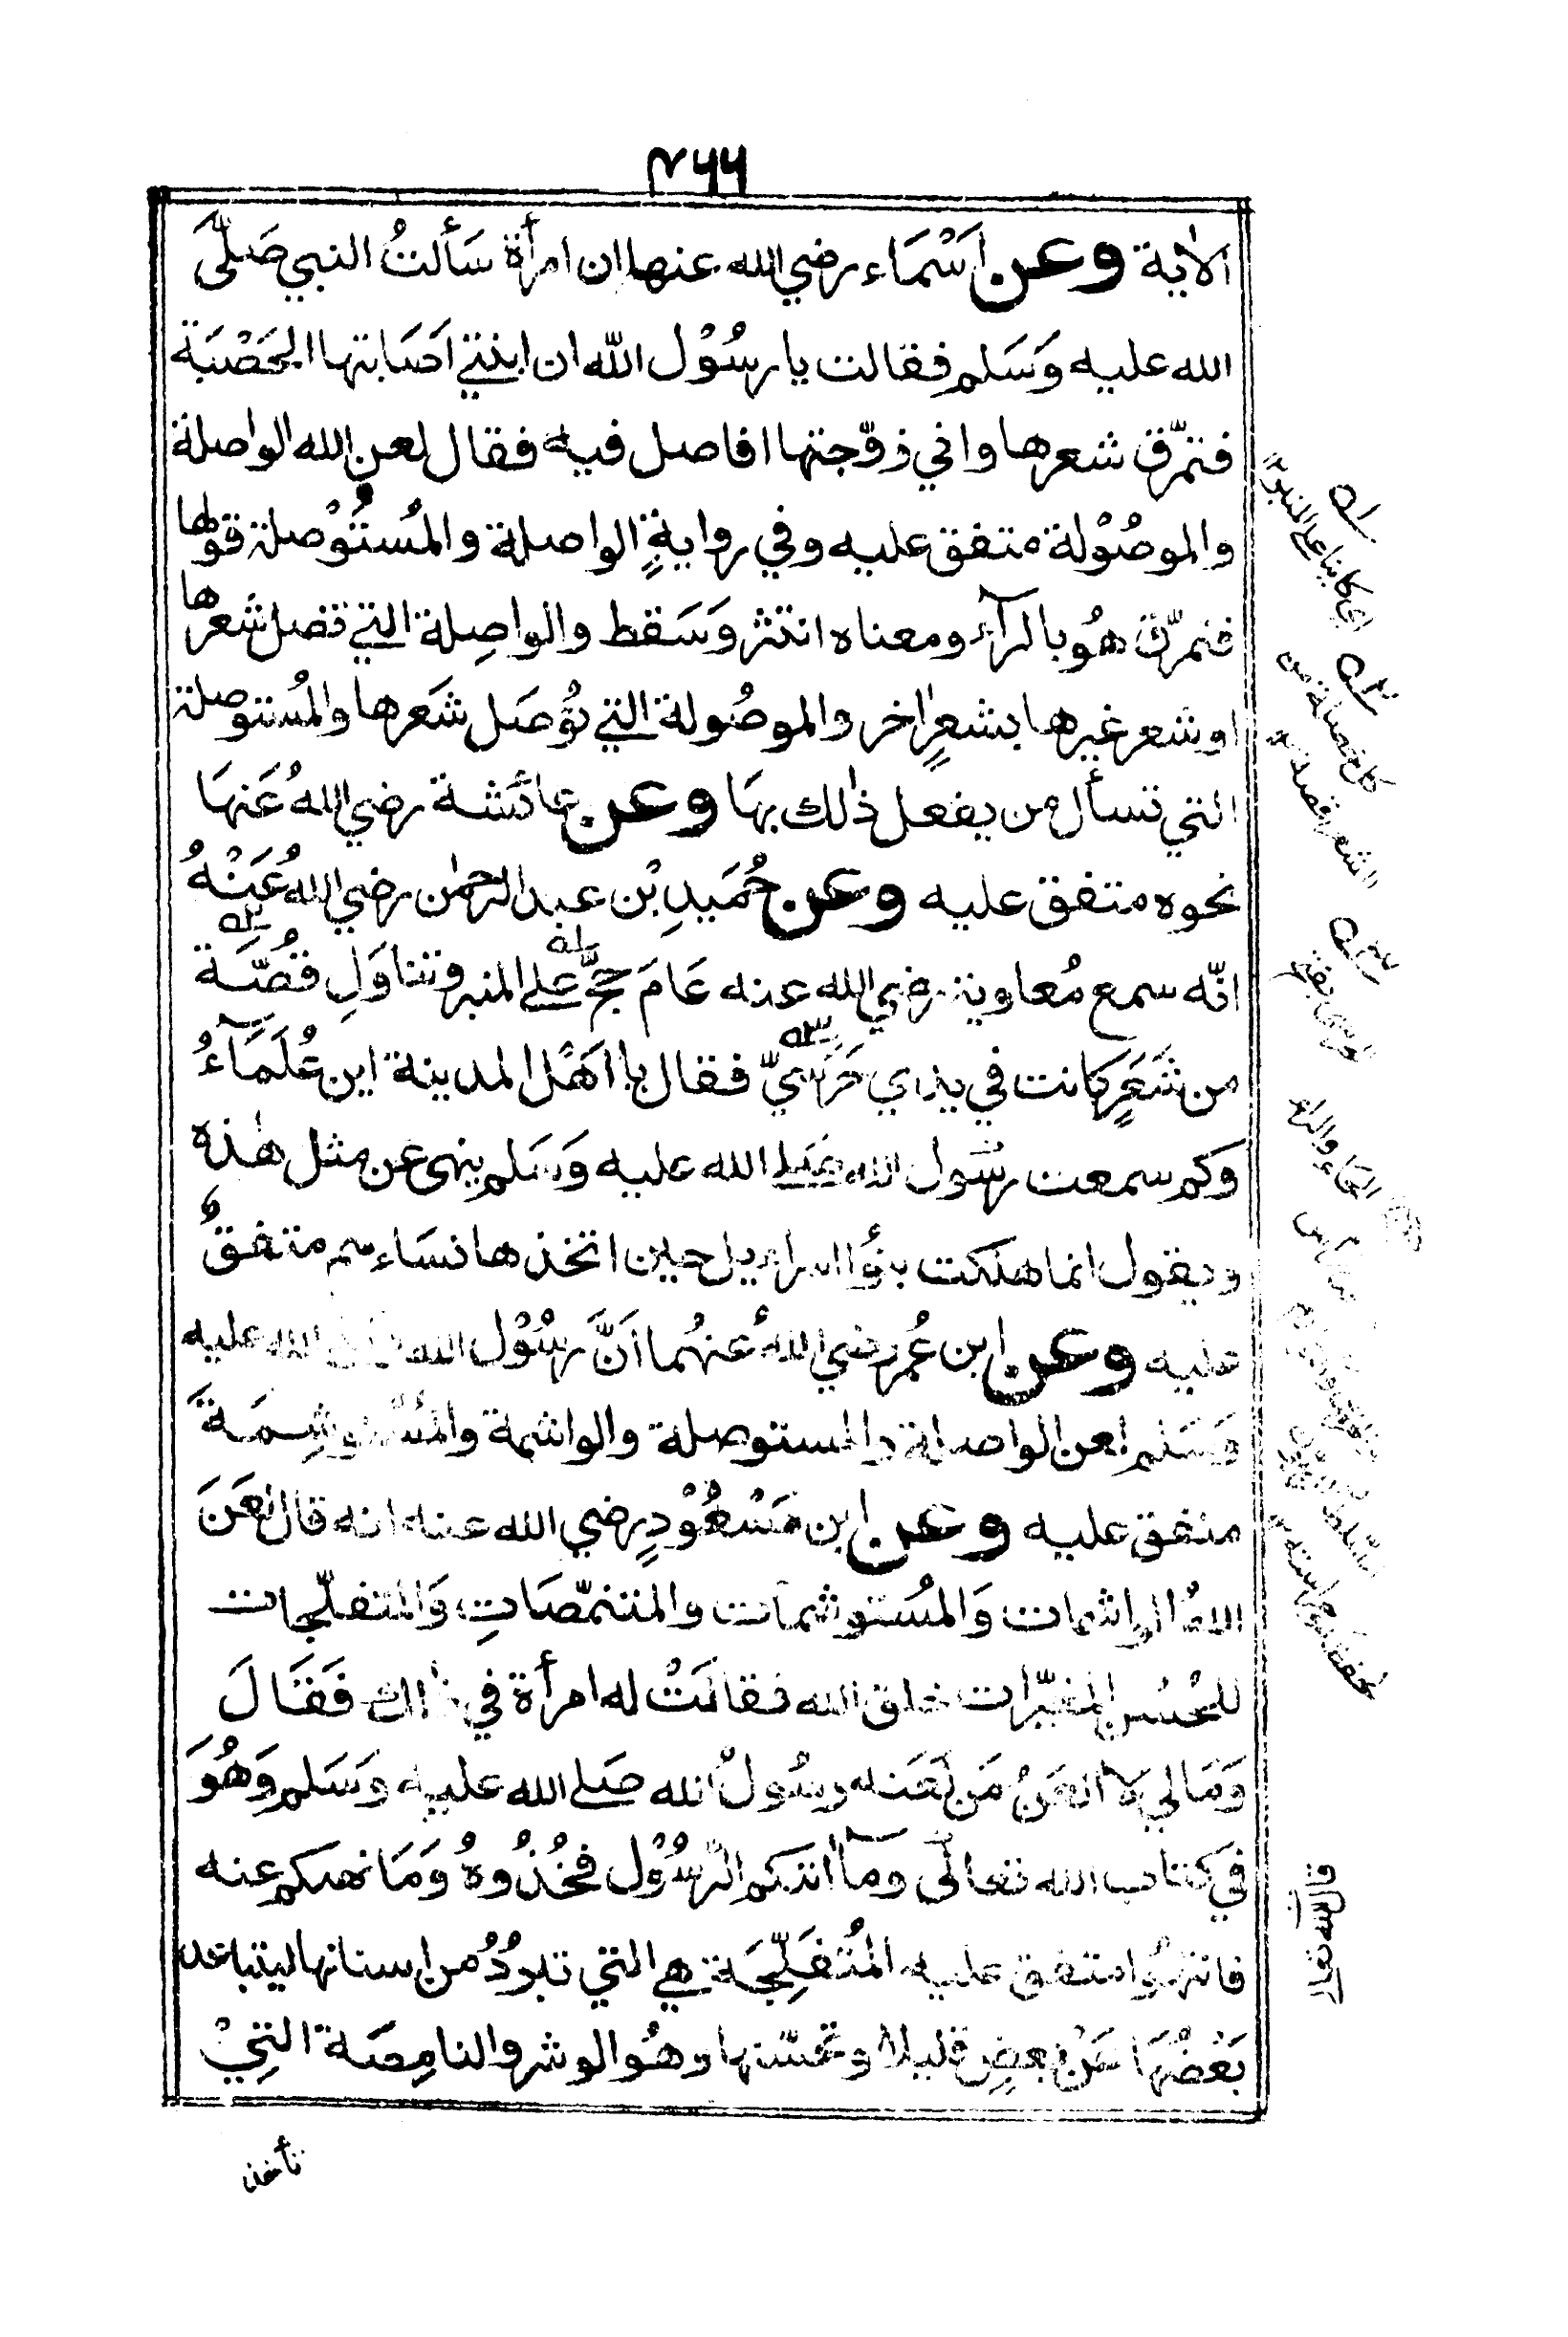 ٤٦٦
الاٰية وعن اَسْمَاء رضي الله عنها ان امرأة سَألتُ النبي صَلَّى
الله عليه وَسَلم فقالت يا رسُوْل اللّٰه ان ابنتي اصَابتها الحَصْبَة
فتمرّق شعرها واني زوّجتها افاصل فيه فقال لعن الله الواصلة
والموصُوْلة متفق عليه وفي روايةٍ الواصلة والمُستَوْصلة قولها
فتمرّق هُو بالرآء ومعناه انتثر وَسَقط والواصِلة التي تصل شَعرها
او شعر غيرها بشعرٍ اٰخر والموصُولة التي يُوْصَل شَعرها والمُستوصلة
التي تسأل من يفعل ذٰلك بهَا وعن عائشة رضي اللهُ عَنهَا
نحوه متفق عليه وعن حُمَيدِ بْن عبد الرحمٰن رضي اللهُ عَنْهُ
انّه سمع مُعاوية رضي الله عنه عَامَ حجَّ على المنبر وتناوَلِ قُصَّة
من شَعَرٍ كانت في يدي حَرَسيّ فقال يا اهَل المدينة اين عُلَمَآءُ
وكم سمعت رسُول الله صَلى الله عليه وَسَلم ينهى عن مثل هٰذه
ويقول انما هلكت بنُوا اسراءيل حين اتخذها نسَاءهم متفقٌ
عليه وعن ابن عُمر رضي اللهُ عنهُما اَنَّ رسُوْل الله صَلى الله عليه
وَسَلم لعن الواصلة والمستوصلة والواشمة والمستوشِمَةَ
متفق عليه وعن ابن مَسْعُوْدٍ رضي الله عنه انه قال لعَنَ
اللهُ الواشمات وَالمُستوشمات والمتنمّصَاتِ وَالمتفلّجات
للحُسْن المغيّرات خلق الله فقالَتْ له امرأة في ذٰلك فَقَالَ
وَمَا لي لا العَنُ مَن لَعَنه رسُولُ الله صَلى الله عليه وَسَلم وَهُوَ
في كتاب الله تعالٰى ومآ اٰتٰىكم الرّسُوْل فخُذُوهُ وَمَا نهىكم عنه
فانتهُوا متفق عليه المُتفَلِّجَة هي التي تبردُ من اسنانها ليتباعد
بَعْضُهَا عَنْ بعضٍ قليلا وتحسّنها وهُو الوشر والنامِصَة التِيْ
تأخذ